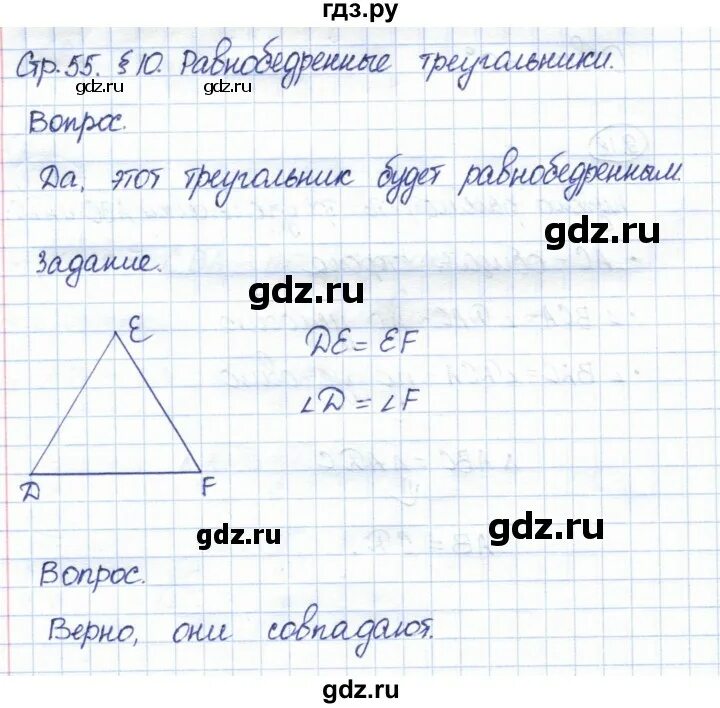 гдз.ру
Стр. 55. § 10. Равнобедренные треугольники.
gdz.ru gdz.ru
Вопрос.
Да, этот треугольник будет равнобедренным.
gdz.ru
Задание.
gdz.ru
E
DE = EF
∠D = ∠F
D F
gdz.ru gdz.ru
Вопрос.
Верно, они совпадают.
gdz.ru